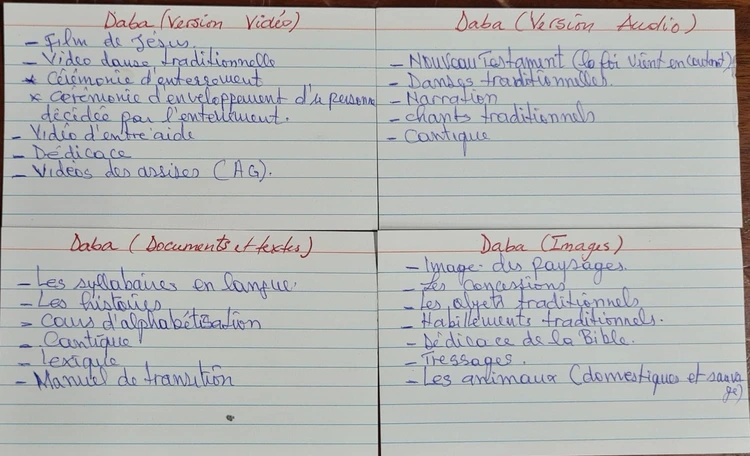 Daba (Version Vidéo)
- Film de Jésus
- Video danse traditionnelle
* Cérémonie d'enterrement
* Cérémonie d'enveloppement d'une personne
décidée par l'enterrement.
- Vidéo d'entre aide
- Dédicace
- Vidéos des assises (AG).
Daba (Version Audio)
- Nouveau Testament (la foi vient en écoutant)
- Danses traditionnelles.
- Narration
- chants traditionnels
- Cantique
Daba (Documents et textes)
- Les syllabaires en langue.
- Les histoires
- Cours d'alphabétisation
- Cantique
- Lexique
- Manuel de transition
Daba (Images)
- Image des paysages.
- Les concessions
- Les objets traditionnels
- Habillements traditionnels.
- Dédicace de la Bible.
- Tressages.
- Les animaux (domestiques et sauva
ge)